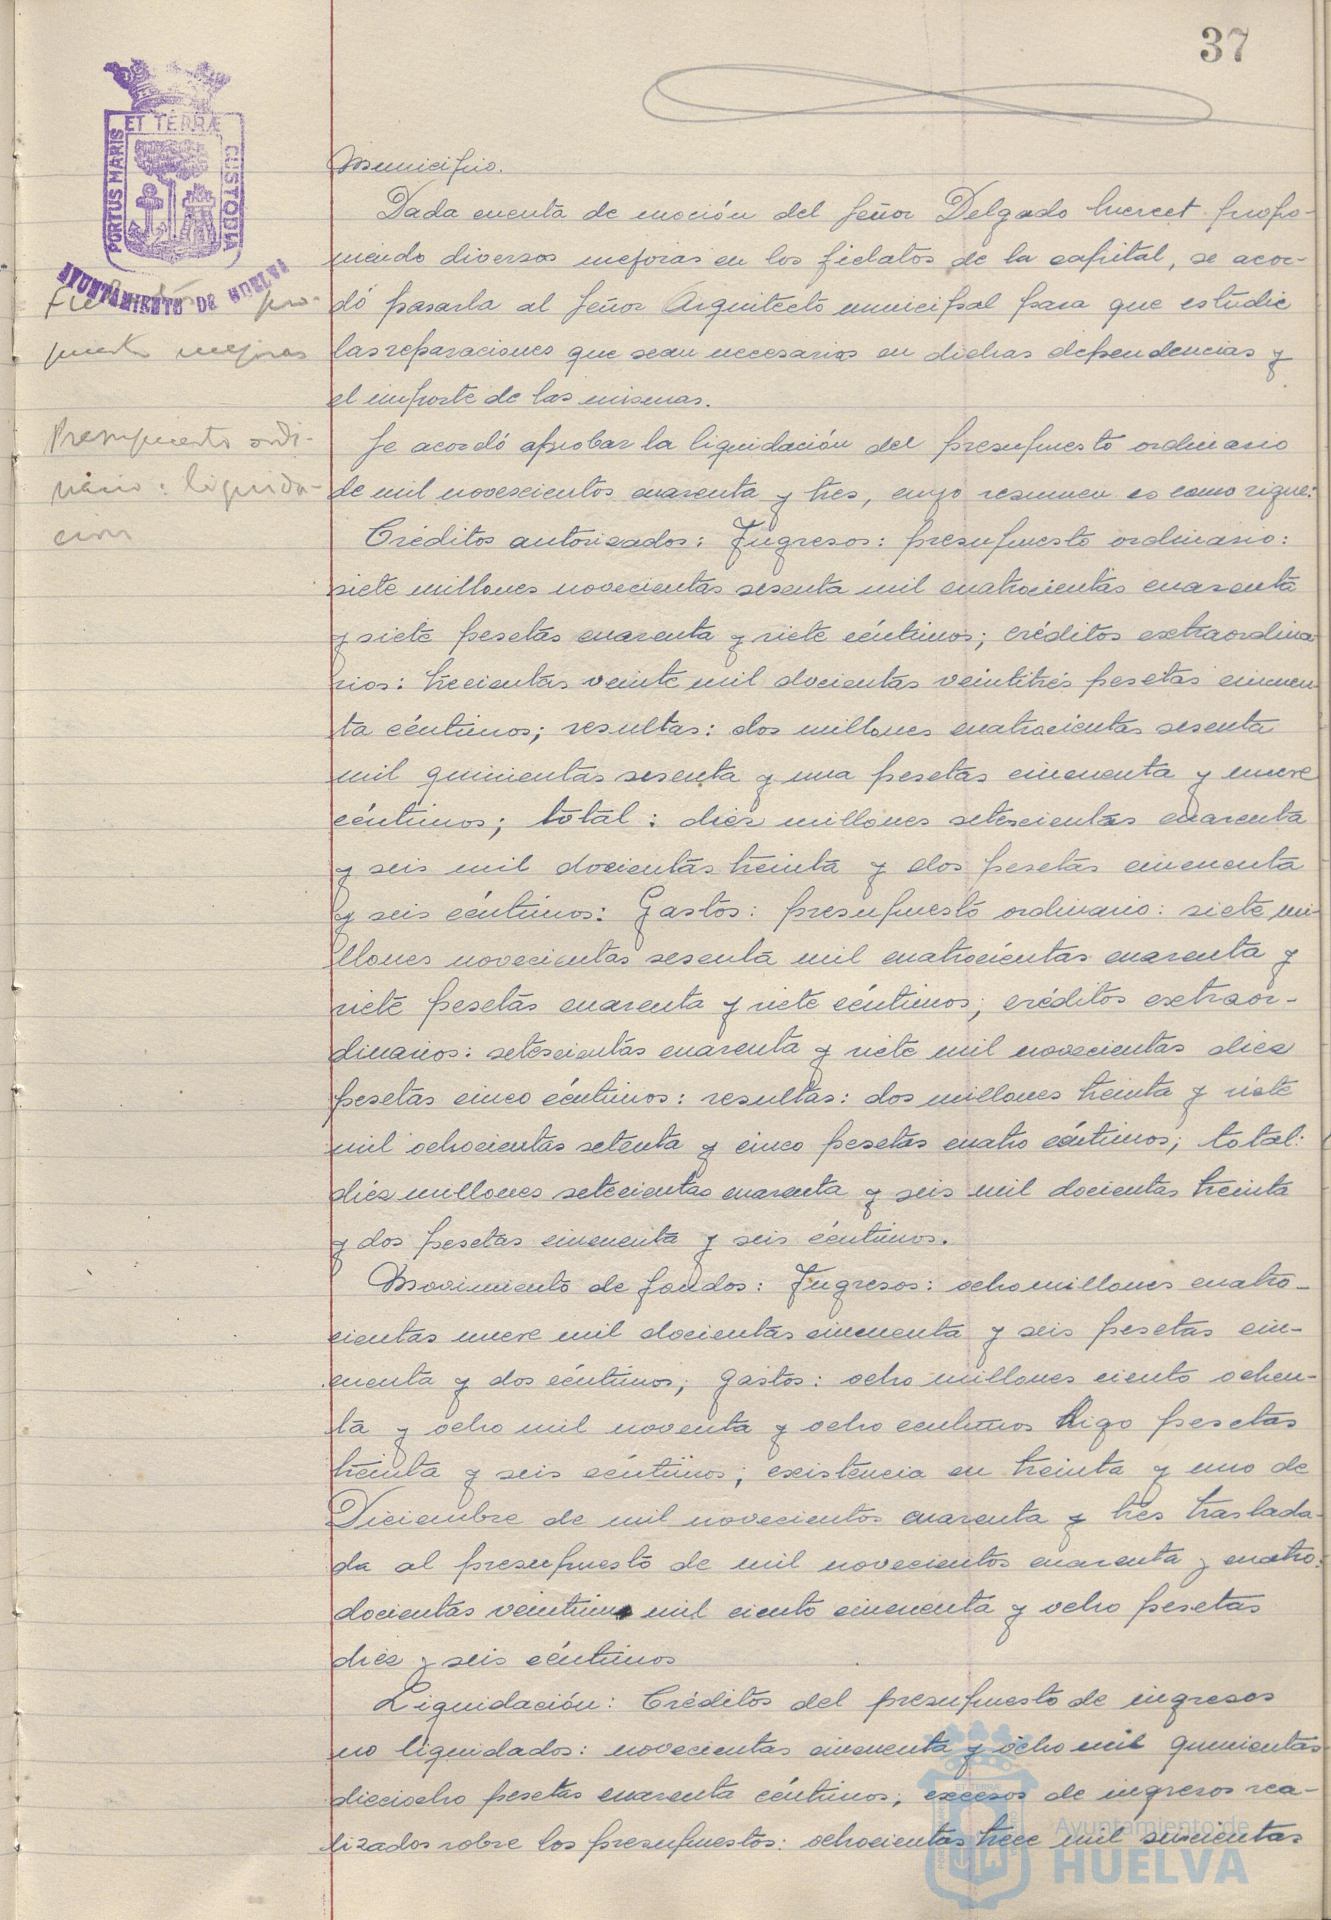 37
PORTUS MARIS ET TERRÆ CUSTODIA
AYUNTAMIENTO DE HUELVA
pro-
puesta mejoras
Presupuesto ordi-
nario: liquida-
cion
Municipio.
Dada cuenta de moción del Señor Delgado propo-
niendo diversas mejoras en los fielatos de la capital, se acor-
dó pasarla al Señor Arquitecto municipal para que estudie
las reparaciones que sean necesarias en dichas dependencias y
el importe de las mismas.
Se acordó aprobar la liquidación del presupuesto ordinario
de mil novescientos cuarenta y tres, cuyo resumen es como sigue:
Créditos autorizados: Ingresos: presupuesto ordinario:
siete millones novecientas sesenta mil cuatrocientas cuarenta
y siete pesetas cuarenta y siete céntimos; créditos extraordina
rios: trecientas veinte mil docientas veintitrés pesetas cincuen
ta céntimos; resultas: dos millones cuatrocientas sesenta
mil quinientas sesenta y una pesetas cincuenta y nueve
céntimos; total: diez millones setescientas cuarenta
y seis mil docientas treinta y dos pesetas cincuenta
y seis céntimos: Gastos: presupuesto ordinario: siete mi
llones novecientas sesenta mil cuatrocientas cuarenta y
siete pesetas cuarenta y siete céntimos; créditos extraor-
dinarios: setescientas cuarenta y siete mil novecientas diez
pesetas cinco céntimos: resultas: dos millones treinta y siete
mil ochocientas setenta y cinco pesetas cuatro céntimos; total:
diez millones setecientas cuarenta y seis mil docientas treinta
y dos pesetas cincuenta y seis céntimos.
Movimiento de fondos: Ingresos: ocho millones cuatro-
cientas nueve mil docientas cincuenta y seis pesetas cin-
cuenta y dos céntimos; gastos: ocho millones ciento ochen-
ta y ocho mil noventa y ocho centimos digo pesetas
treinta y seis céntimos; existencia en treinta y uno de
Diciembre de mil novecientos cuarenta y tres traslada-
da al presupuesto de mil novecientos cuarenta y cuatro:
docientas veintiun mil ciento cincuenta y ocho pesetas
diez y seis céntimos
Liquidación: Créditos del presupuesto de ingresos
no liquidados: novecientas cincuenta y ocho mil quinientas
dieciocho pesetas cuarenta céntimos; excesos de ingresos rea-
lizados sobre los presupuestos: ochocientas trece mil seiscientas
Ayuntamiento de
HUELVA